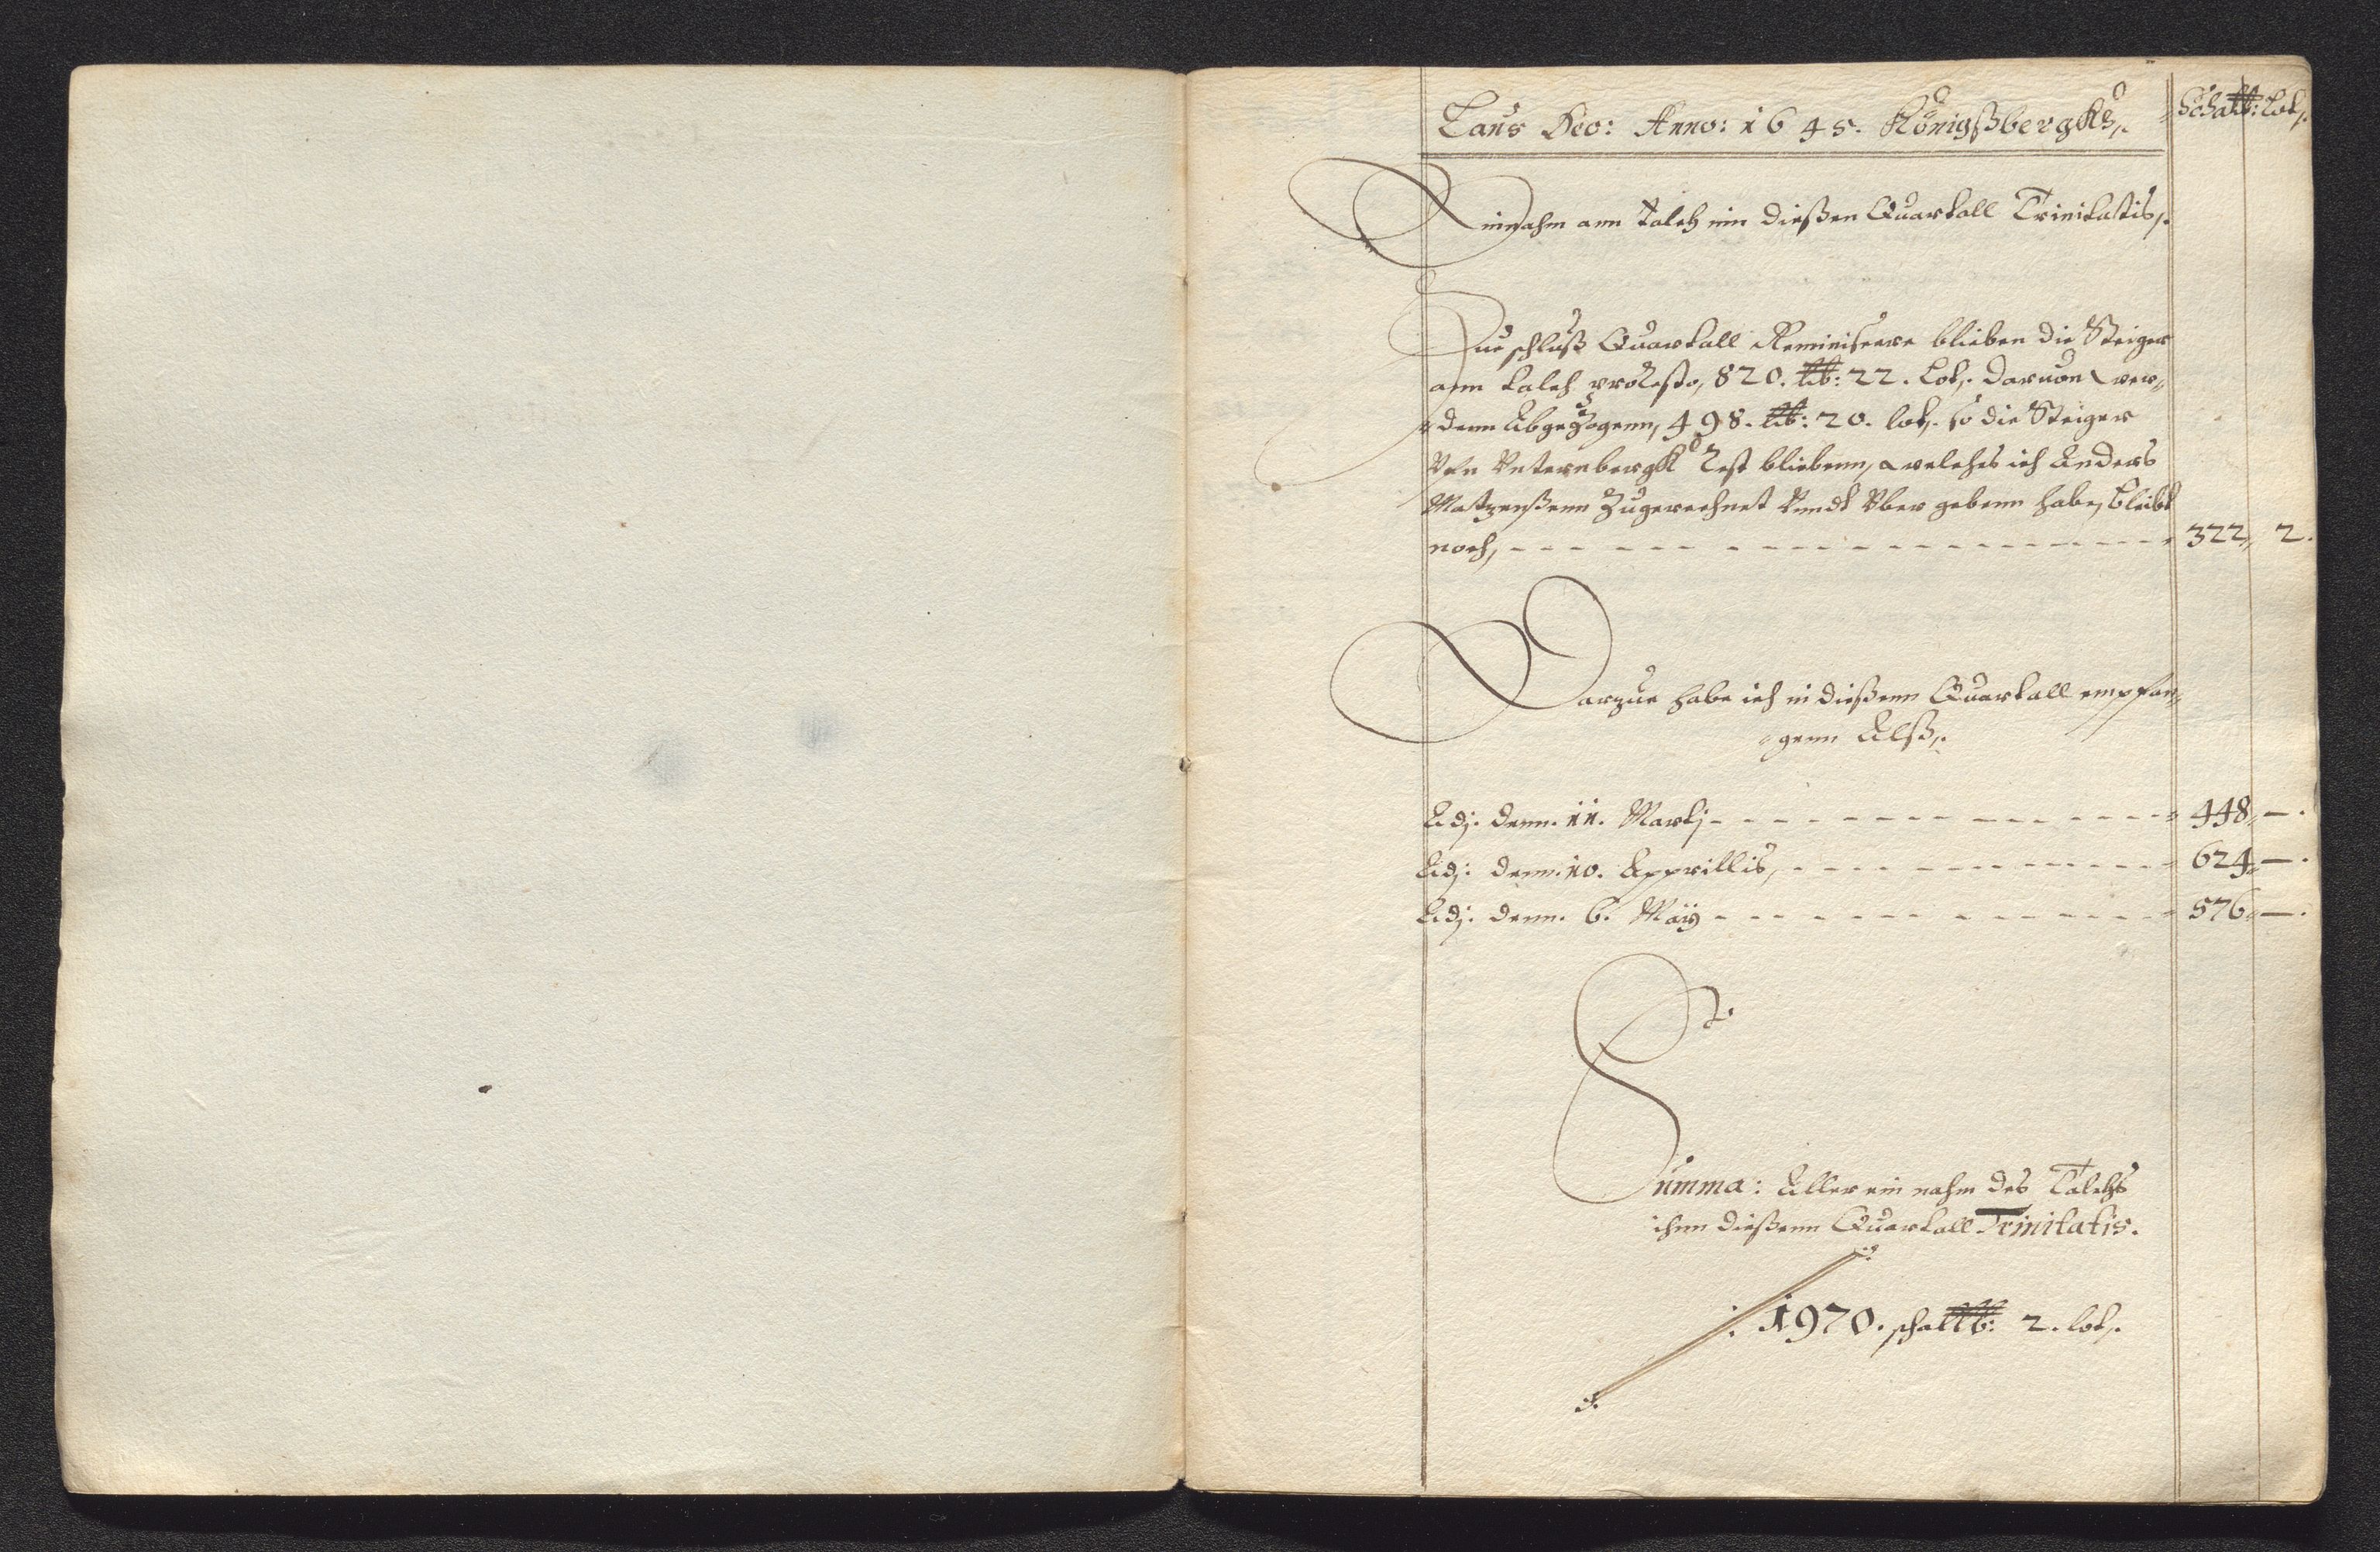 Laus Deo: Anno: 1645. Königßbergkh,. Schal℔: Lot,.
Einnahm ann Talch inn dießen Quartall Trinitatis,.
Zue schluß Quartall Reminiscere blieben die Steiger
ann talch pro Resto, 820. ℔: 22. Lot,. daruon wer„
„denn Abgezogenn, 498. ℔: 20. lot,. so die Steiger
Rest bliebenn, welches ich Anders
Matzenßenn Zugerechnet Vnndt Vber gebenn habe, bleibt
noch, - - - 322„ 2.
Darzue habe ich in dießenn Quartall empfan„
„genn Alß,.
Adj. denn. 11. Martj - - - 448„ —.
Adj: denn. 10. Apprillis, - - - 624„ —.
Adj. denn. 6. Maÿ - - - 576„ —.
Summa: Aller ein nahm des Talchs
ihnn dießenn Quartall Trinitatis.
1970. schal℔: 2. lot,.